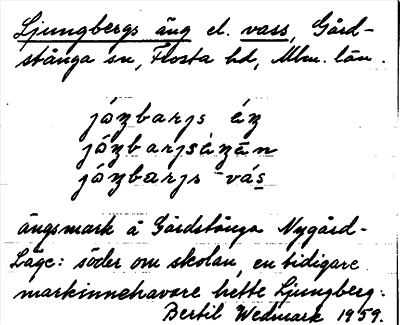 Ljungbergs äng el. vass, Gård-
stånga sn, Frosta hd, Mlm. län.
jóŋbarjs éŋ
jóŋbarjséŋän
jóŋbarjs vás
ängsmark å Gårdstånga Nygård-
Läge: söder om skolan, en tidigare
markinnehavare hette Ljungberg.
Bertil Wedmark 1959.